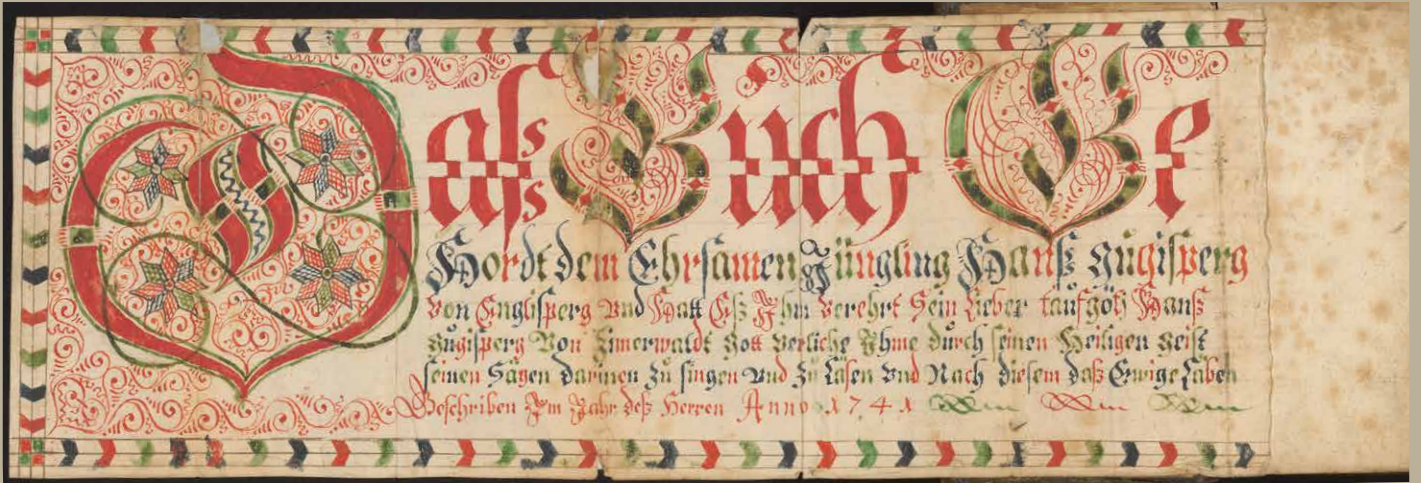 Daſs Buch Ge
Hordt dem Ehrſamen Jüngling Hanß Gůgiſperg
von Engliſperg vnd Hatt Eß Ihm verehrt Sein Lieber taufgöti Hanß
Gůgiſperg Von Zimerwaldt Gott verliche Ihme durch ſeinen Heiligen geiſt
ſeinen Sägen darinen zů ſingen vnd zů Läſen vnd Nach dieſem daß Ewige Läben
Beſchriben Im Jahr deß Herren Anno 1741